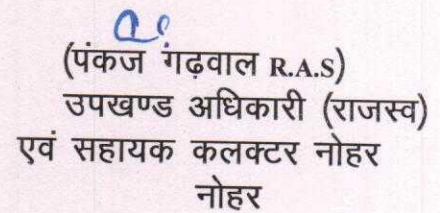 (पंकज गंढ़वाल R.A.S)
उपखण्ड अधिकारी (राजस्व)
एवं सहायक कलक्टर नोहर
नोहर